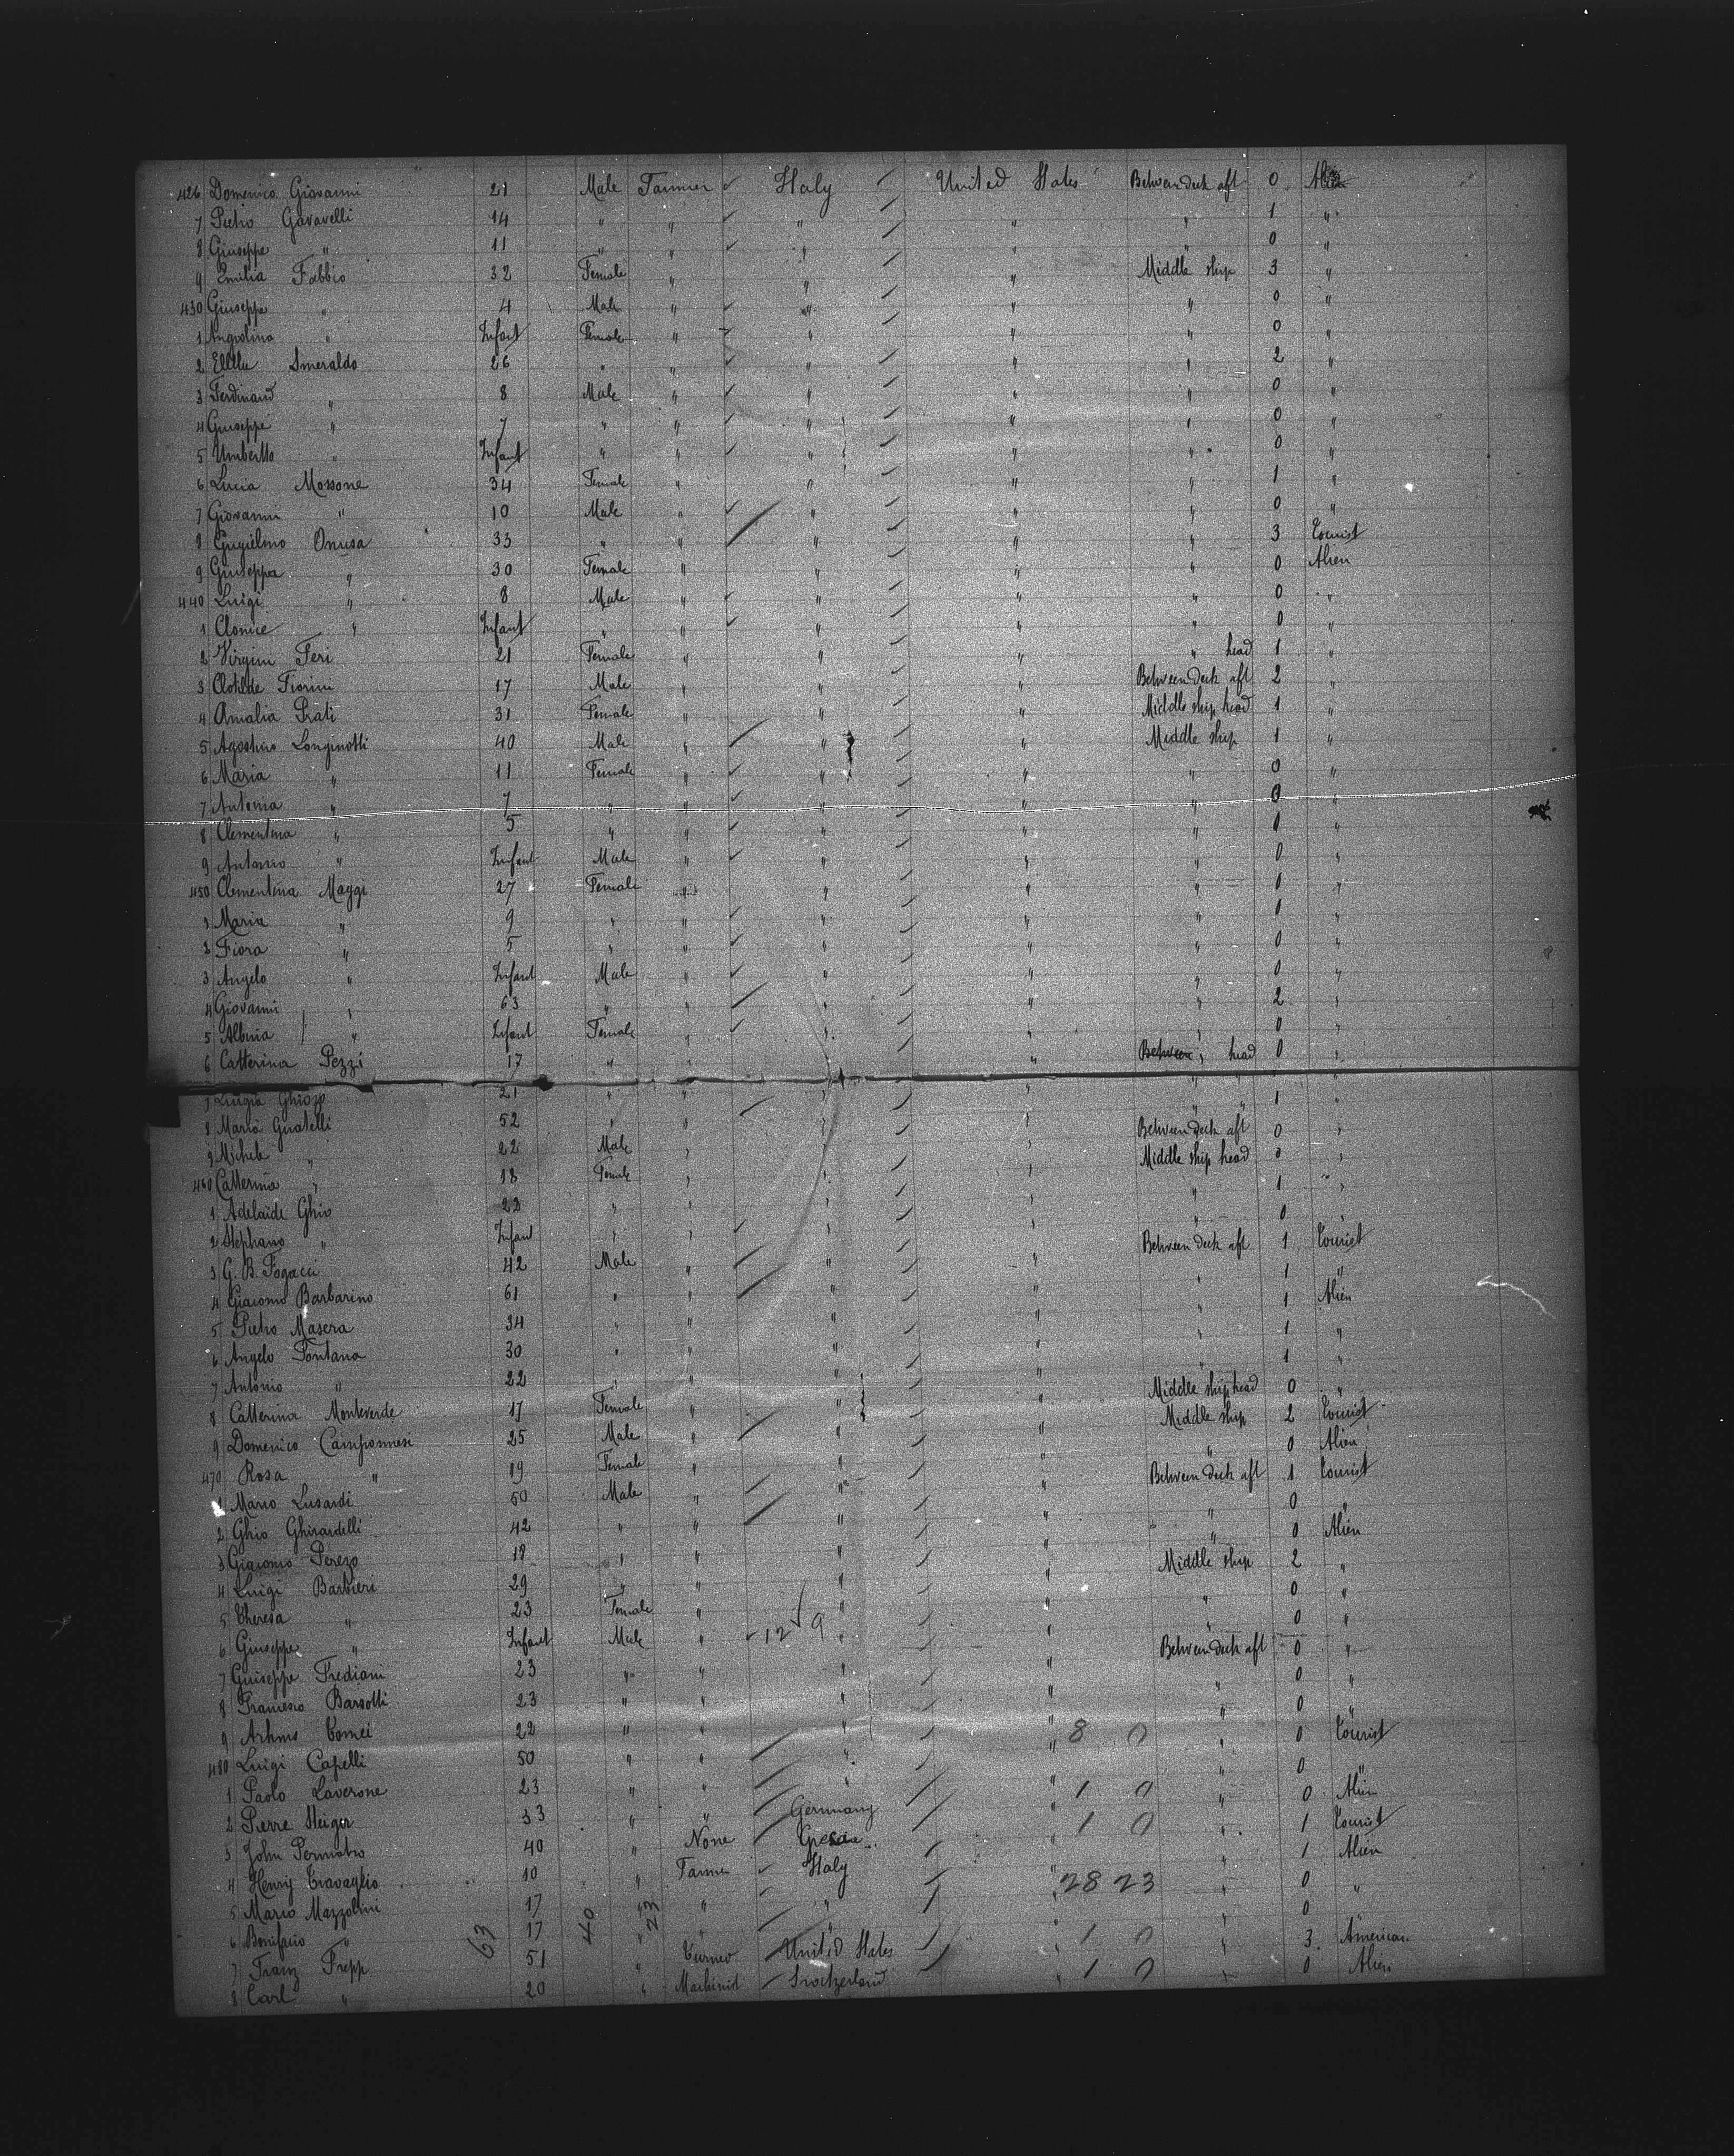 426 Domenico Giovanni 21 Male Farmer Italy United States Between deck aft 0 Alien
7 Pietro Gavavelli 14 " " " " " 1 "
8 Giuseppe " 11 " " " " " 0 "
9 Emilia Fabbio 32 Female " " " Middle ship 3 "
430 Giuseppe " 4 Male " " " " 0 "
1 Angiolina " Infant Female " " " " 0 "
2 Smeraldo 26 " " " " " 2 "
3 Ferdinand " 8 Male " " " " 0 "
4 Giuseppe " 7 " " " " " 0 "
5 Umbertto " Infant " " " " " 0 "
6 Lucia Mossone 34 Female " " " " 1 "
7 Giovanni " 10 Male " " " " 0 "
8 Gugielmo Onusa 33 " " " " " 3 Tourist
9 Giuseppa " 30 Female " " " " 0 Alien
440 Luigi " 8 Male " " " " 0 "
1 Clonice " Infant " " " " " 0 "
2 Virgini Feri 21 Female " " " " head 1 "
3 Clotilde Fiorini 17 Male " " " Between deck aft 2 "
4 Amalia Prati 31 Female " " " Middle ship head 1 "
5 Agostino Longinotti 40 Male " " " Middle ship 1 "
6 Maria " 11 Female " " " " 0 "
7 Antonia " 7 " " " " " 0 "
8 Clementina " 5 " " " " " 0 "
9 Antonio " Infant Male " " " " 0 "
450 Clementina Maggi 27 Female " " " " 0 "
1 Maria " 9 " " " " " 0 "
2 Fiora " 5 " " " " " 0 "
3 Angelo " Infant Male " " " " 0 "
4 Giovanni " 63 " " " " " 2 "
5 Albina " Infant Female " " " " 0 "
6 Catterina Pezzi 17 " " " " Between " head 0 "
7 Luigia Ghiozo 21 " " " " " " 1 "
8 Maria Guatelli 52 " " " " Between deck aft 0 "
9 Michele " 22 Male " " " Middle ship head 0 "
460 Catterina " 18 Female " " " " 1 "
1 Adelaide Ghio 22 " " " " " 0 "
2 Stephano " Infant " " " " Between deck aft 1 Tourist
3 G. B. Fogacci 42 Male " " " " 1 "
4 Giacomo Barbarino 61 " " " " " 1 Alien
5 Pietro Masera 34 " " " " " 1 "
6 Angelo Fontana 30 " " " " " 1 "
7 Antonio " 22 " " " " Middle ship head 0 "
8 Catterina Monteverde 17 Female " " " Middle ship 2 Tourist
9 Domenico Camponnesi 25 Male " " " " 0 Alien
470 Rosa " 19 Female " " " Between deck aft 1 Tourist
1 Mario Lusardi 50 Male " " " " 0 "
2 Ghio Ghirardelli 42 " " " " " 0 Alien
3 Giacomo Perezo 18 " " " " Middle ship 2 "
4 Luigi Barbieri 29 " " " " " 0 "
5 Theresa " 23 Female " " " " 0 "
6 Giuseppe " Infant Male " 12 9 " " Between deck aft 0 "
7 Guiseppe Frediani 23 " " " " " 0 "
8 Francesco Barsotti 23 " " " " " 0 "
9 Tomei 22 " " " " 8 0 " 0 Tourist
480 Luigi Capelli 50 " " " " " 0 "
1 Paolo Laverone 23 " " " " 1 0 " 0 Alien
2 Pierre Steiger 33 " " Germany " 1 0 " 1 Tourist
3 John 40 " None " " 1 Alien
4 Henry Travaglio 10 " Farmer Italy " 28 23 " 0 "
5 Mario Mazzolini 17 " " " " " 0
6 Bonifacio " 17 " " " 1 0 " 3 American
7 Franz Frepp 51 " Turner United States " 0 Alien
8 Carl " 20 " Machinist Switzerland " 1 0 "
63 40 23